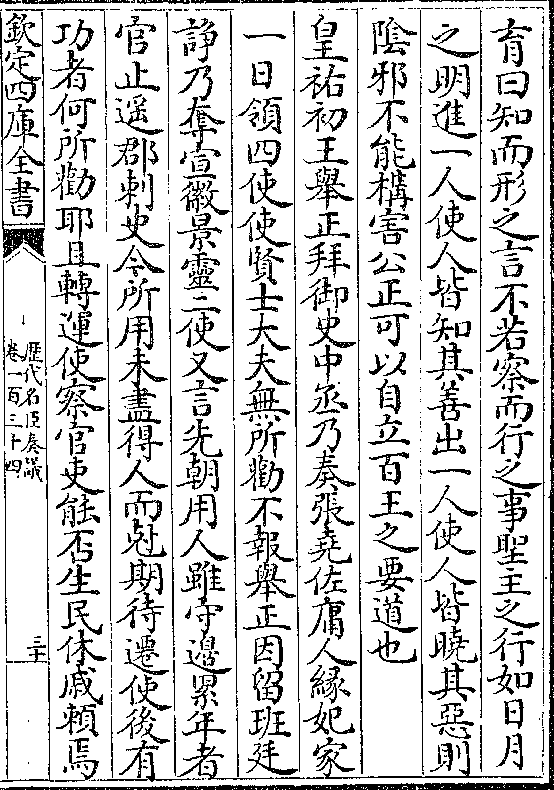 育曰知而形之言不若察而行之事聖主之行如日月
之明進一人使人皆知其善出一人使人皆曉其惡則
陰邪不能構害公正可以自立百王之要道也
皇祐初王舉正拜御史中丞乃奏張堯佐庸人緣妃家
一日領四使使賢士大夫無所勸不報舉正因留班廷
諍乃奪宣徽景靈二使又言先朝用人雖守邊累年者
官止遥郡刺史今所用未盡得人而尅期待遷使後有
功者何所勸耶且轉運使察官吏能否生民休戚賴焉
欽定四庫全書
歷代名臣奏議
卷一百三十四
三十